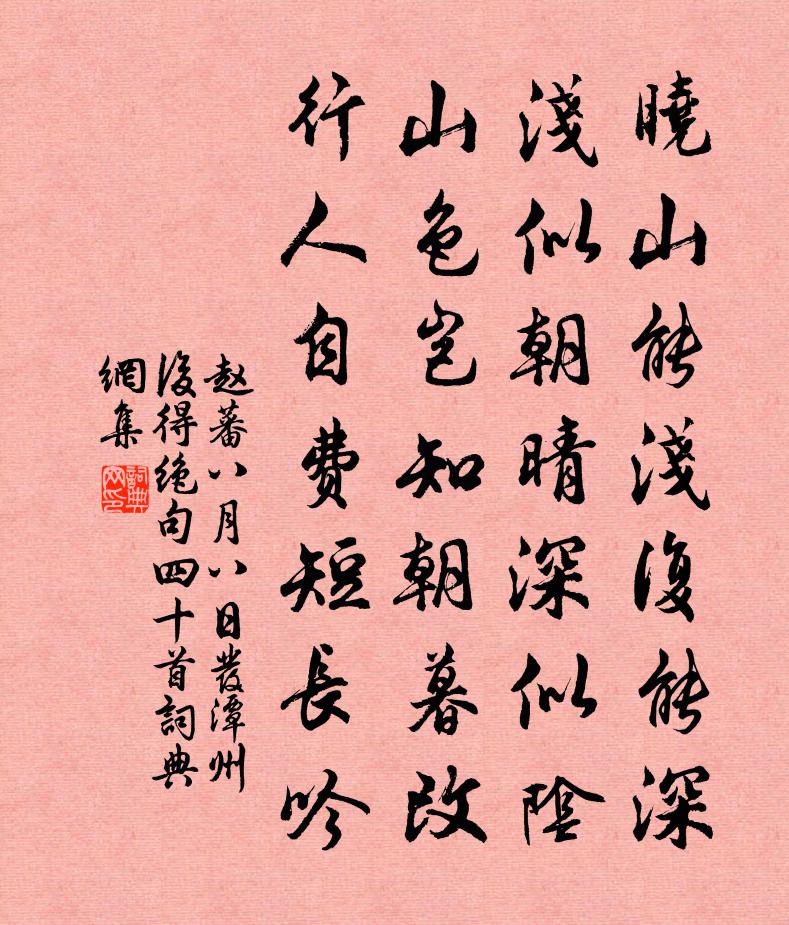 曉山能淺復能深
淺似朝晴深似陰
山色豈知朝暮改
行人自費短長吟
赵蕃八月八日發潭州
後得絶句四十首詞典
網集
詞典
网印